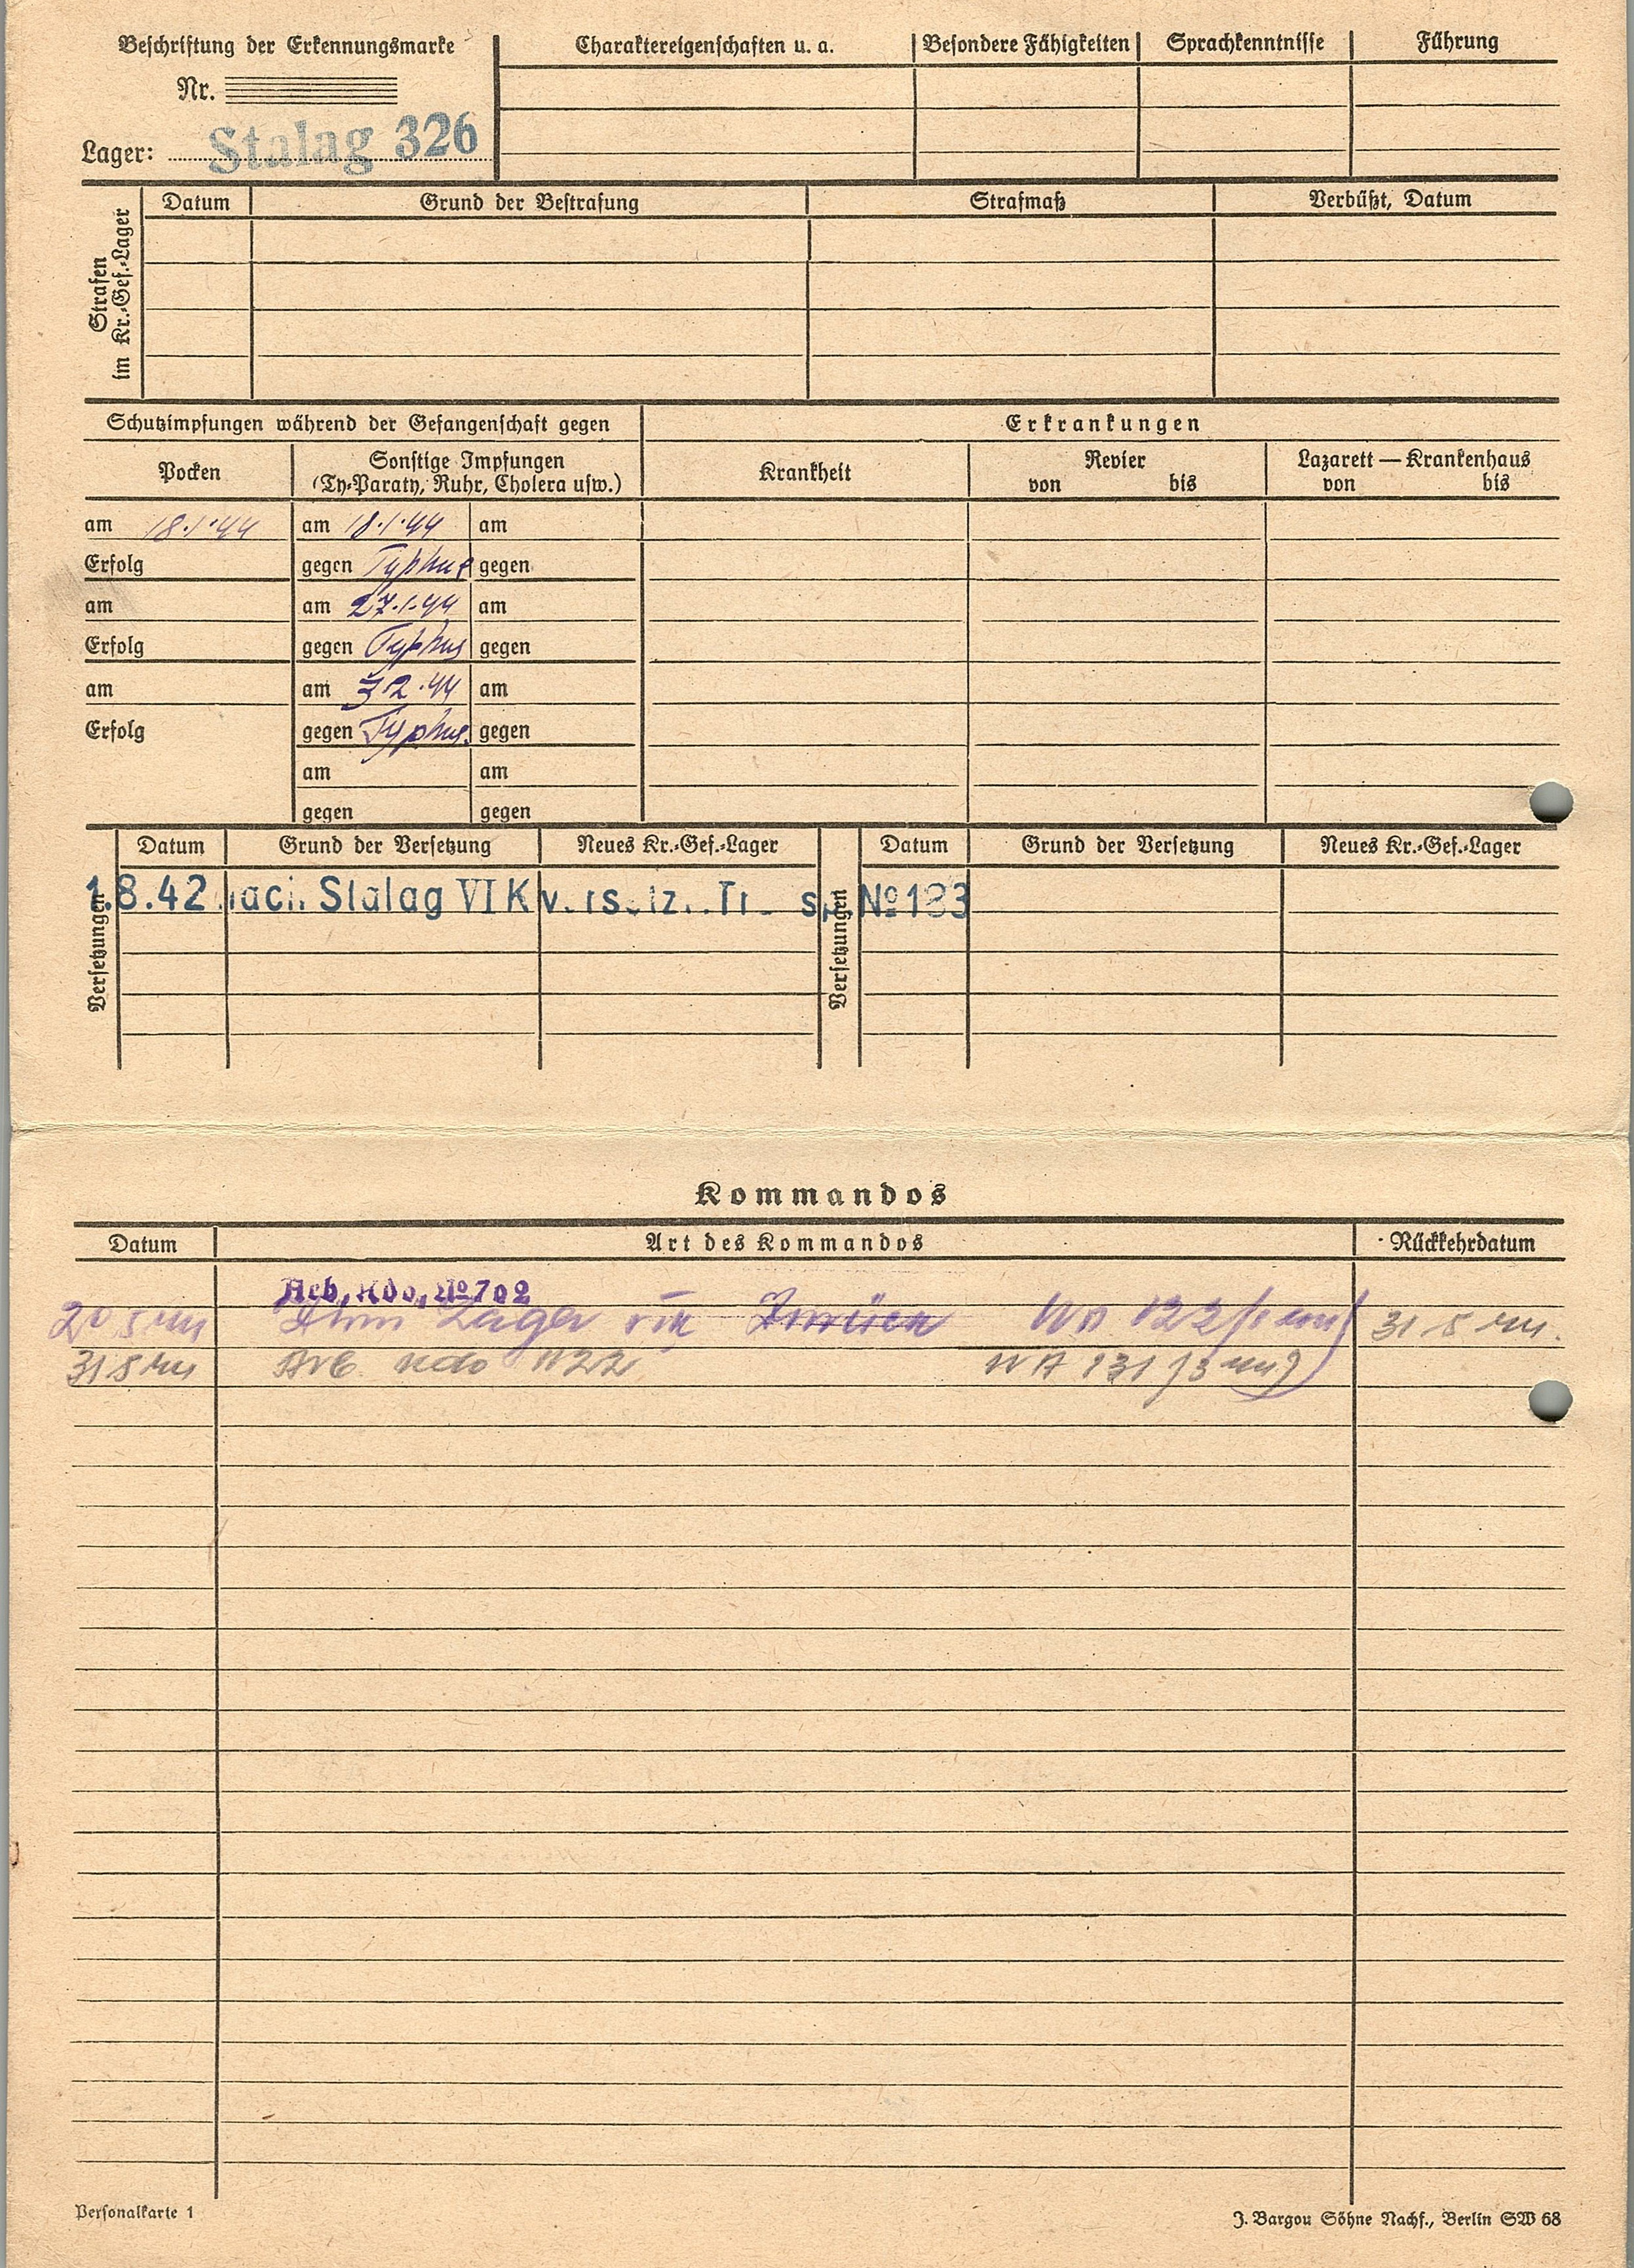 Beschriftung der Erkennungsmarke
Nr.
Lager: Stalag 326
Charaktereigenschaften u. a. Besondere Fähigkeiten Sprachkenntnisse Führung
Strafen im Kr.-Gef.-Lager
Datum Grund der Bestrafung Strafmaß Verbüßt, Datum
Schutzimpfungen während der Gefangenschaft gegen Erkrankungen
Pocken Sonstige Impfungen Krankheit Revier Lazarett — Krankenhaus
(Ty-Paraty, Ruhr, Cholera usw.) von bis von bis
am 18.1.44 am 18.1.44 am
Erfolg gegen Typhus gegen
am am 27.1.44 am
Erfolg gegen Typhus gegen
am am 3.2.44 am
Erfolg gegen Typhus. gegen
am am
gegen gegen
Versetzungen Datum Grund der Versetzung Neues Kr.-Gef.-Lager Versetzungen Datum Grund der Versetzung Neues Kr.-Gef.-Lager
1.8.42 nach Stalag VI K № 183
Kommandos
Datum Art des Kommandos Rückkehrdatum
Arb. Kdo. № 702
Lager
Personalkarte 1 J. Bargou Söhne Nachf., Berlin SW 68